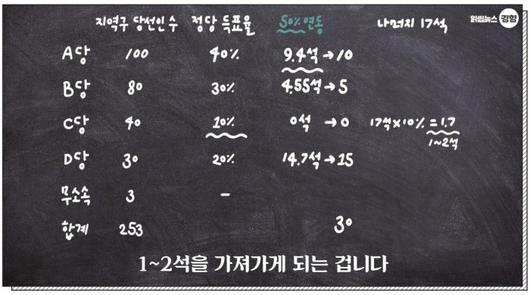 지역구 당선인수 정당 득표율 50% 연동 나머지 17석
읽씹뉴스 경향
A당 100 40% 9.4석→10
B당 80 30% 4.55석→5
C당 40 10% 0석→0 17석×10% = 1.7
1~2석
D당 30 20% 14.7석→15
무소속 3 -
합계 253 30
1~2석을 가져가게 되는 겁니다